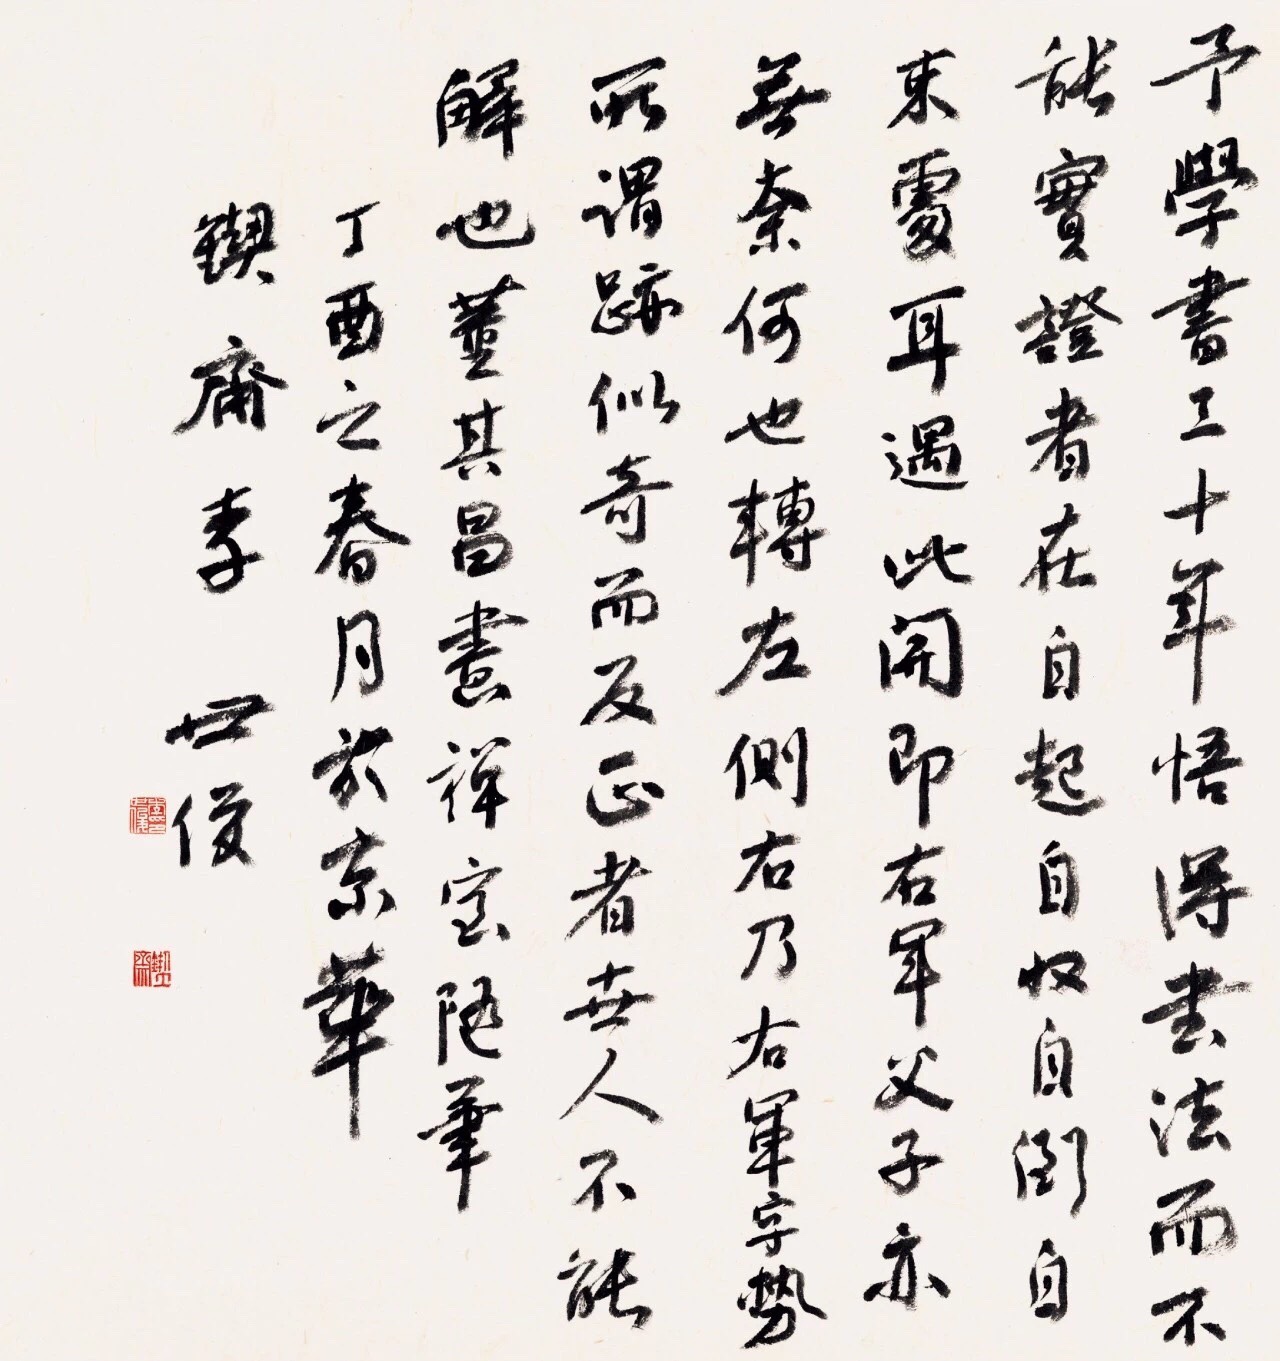 予學書三十年悟得書法而不
能實證者在自起自收自倒自
束處耳過此関即右軍父子亦
無奈何也轉左側右乃右軍字勢
所謂跡似奇而反正者世人不能
解也董其昌畫禪室隨筆
丁酉之春月於京華
鍥齋李世俊